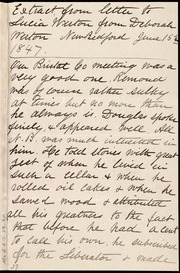 Extract from letter to
Lucia Weston from Deborah
Weston New Bedford June 15th
1847.
Our Bristol Co meeting was a
very good one Remond
was of course rather sulky
at times but no more than
he always is. Douglas spoke
finely & appeared well All
N.B. was much interested in
him. He told stories with great
zest of when he lived in
such a cellar & when he
rolled oil casks & when he
sawed wood & attributed
all his greatness to the fact
that before he had a cent
to call his own he subscribed
for the Liberator & made